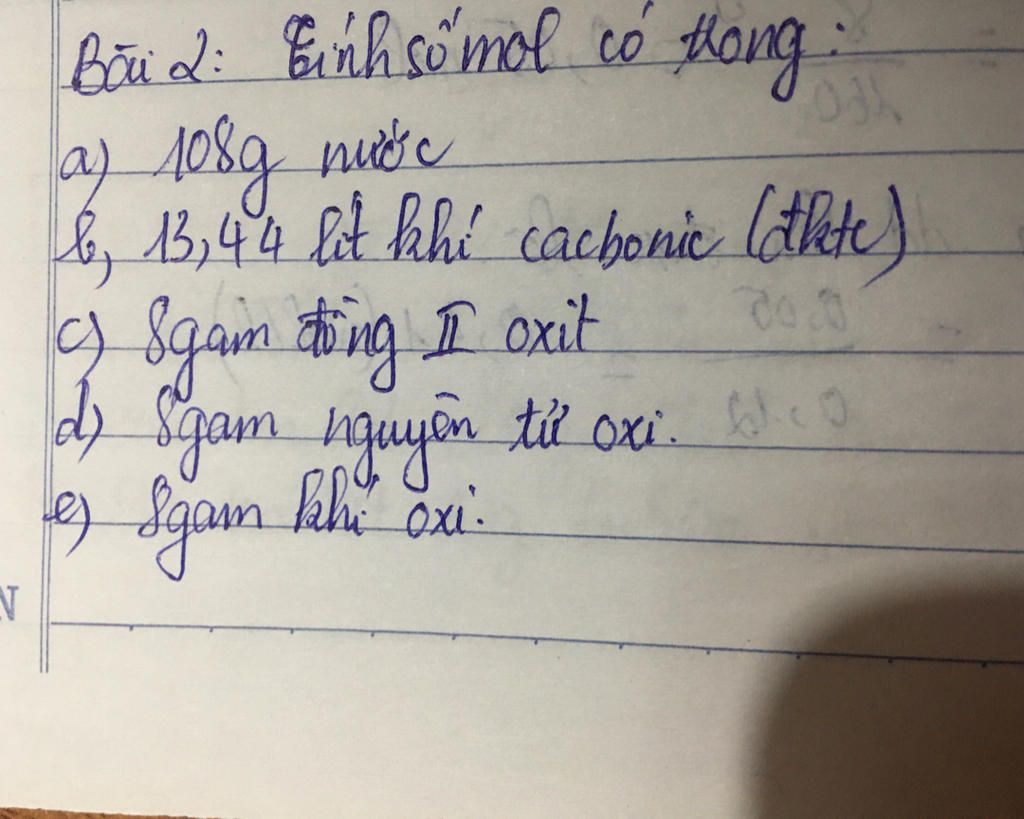 Bài 2: Tính số mol có trong:
a) 108g nước
b, 13,44 lít khí cacbonic (đktc)
c) 8gam đồng II oxit
d) 8gam nguyên tử oxi.
e) 8gam khí oxi.
N